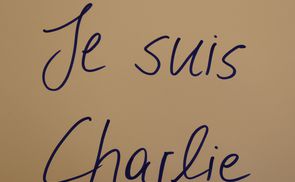 Je suis
Charlie